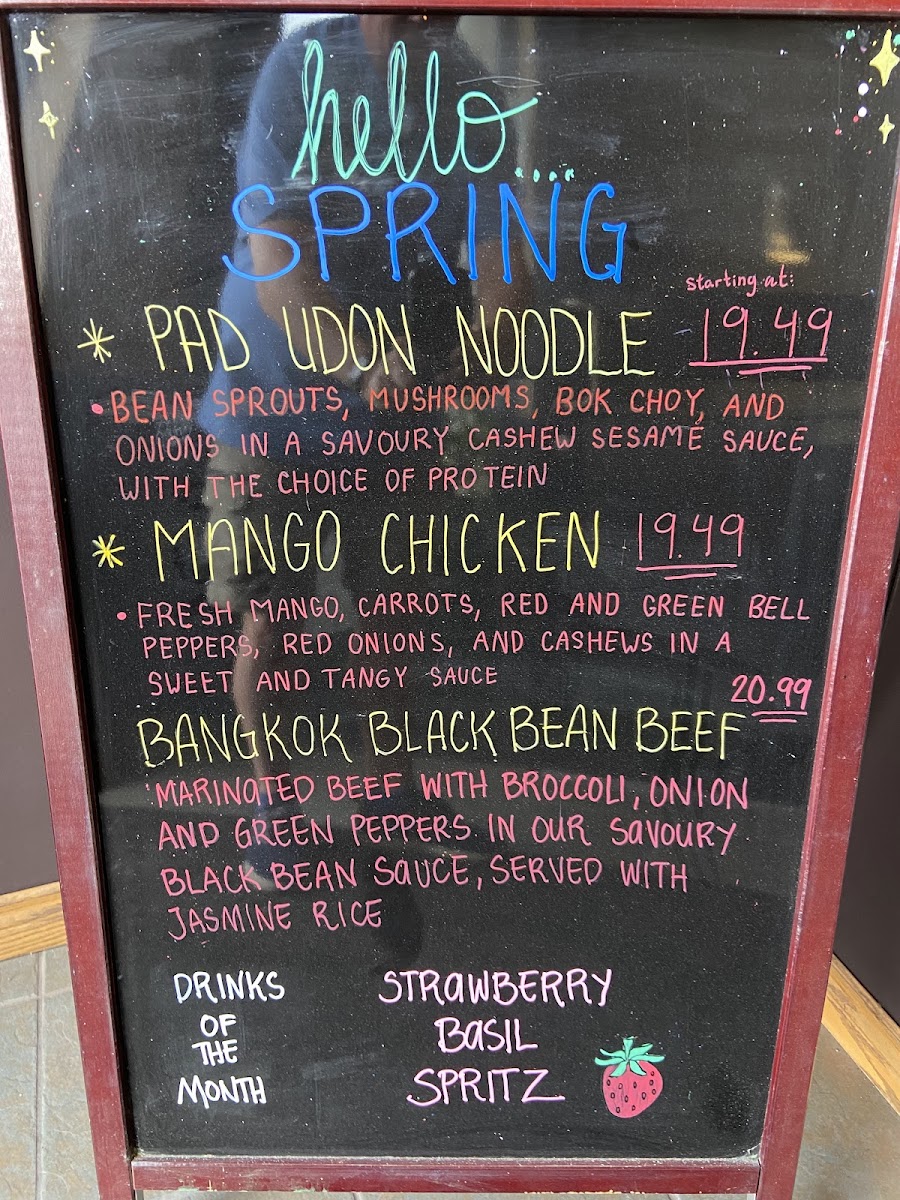 hello....
SPRING
starting at:
* PAD UDON NOODLE 19.49
• BEAN SPROUTS, MUSHROOMS, BOK CHOY, AND
ONIONS IN A SAVOURY CASHEW SESAME SAUCE,
WITH THE CHOICE OF PROTEIN
* MANGO CHICKEN 19.49
• FRESH MANGO, CARROTS, RED AND GREEN BELL
PEPPERS, RED ONIONS, AND CASHEWS IN A
SWEET AND TANGY SAUCE
20.99
BANGKOK BLACK BEAN BEEF
MARINATED BEEF WITH BROCCOLI, ONION
AND GREEN PEPPERS IN OUR SAVOURY
BLACK BEAN SAUCE, SERVED WITH
JASMINE RICE
DRINKS
OF
THE
MONTH
STRAWBERRY
BASIL
SPRITZ